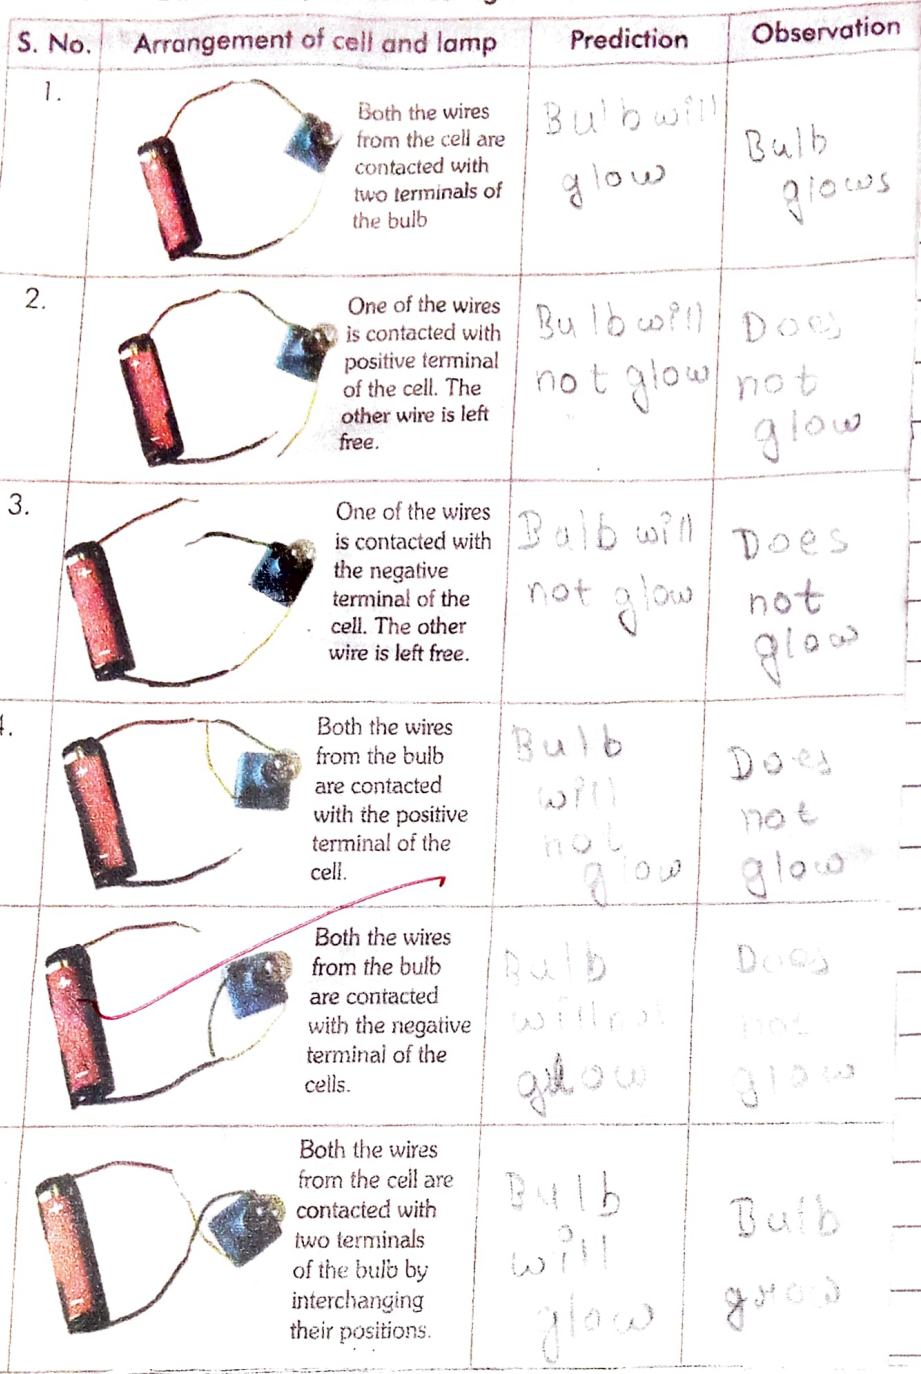 S. No. Arrangement of cell and lamp Prediction Observation
1.
Both the wires
from the cell are
contacted with
two terminals of
the bulb
Bulb will
glow
Bulb
glows
2.
One of the wires
is contacted with
positive terminal
of the cell. The
other wire is left
free.
Bulb will
not glow
Does
not
glow
3.
One of the wires
is contacted with
the negative
terminal of the
cell. The other
wire is left free.
Bulb will
not glow
Does
not
glow
Both the wires
from the bulb
are contacted
with the positive
terminal of the
cell.
Bulb
will
not
glow
Does
not
glow
Both the wires
from the bulb
are contacted
with the negative
terminal of the
cells.
Bulb
will not
glow
Does
not
glow
Both the wires
from the cell are
contacted with
two terminals
of the bulb by
interchanging
their positions.
Bulb
will
glow
Bulb